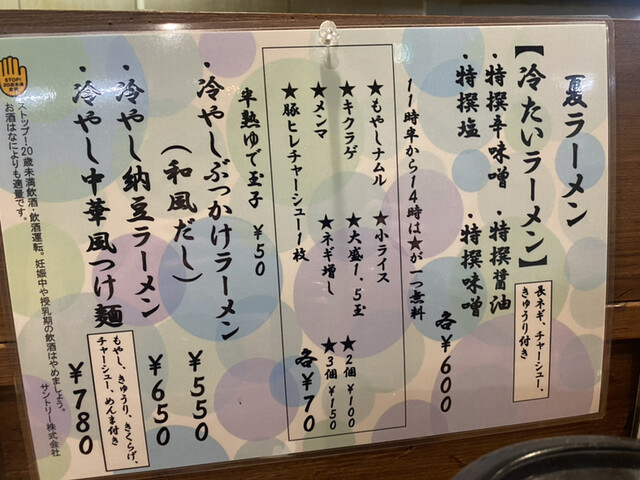 夏ラーメン
【冷たいラーメン】
長ネギ、チャーシュー、
きゅうり付き
・特撰辛味噌 ・特撰醤油
・特撰塩 ・特撰味噌
各¥600
11時半から14時は★が一つ無料
★もやしナムル ★小ライス
★キクラゲ ★大盛1.5玉
★メンマ ★ネギ増し
★豚ヒレチャーシュー1枚
★2個¥100
★3個¥150
各¥70
半熟ゆで玉子 ¥50
・冷やしぶっかけラーメン
(和風だし) ¥550
・冷やし納豆ラーメン ¥650
・冷やし中華風つけ麺 ¥780
もやし、きゅうり、きくらげ、
チャーシュー、めんま付き
STOP!
20歳未満
飲酒
ストップ!20歳未満飲酒・飲酒運転。妊娠中や授乳期の飲酒はやめましょう。
お酒はなによりも適量です。
サントリー株式会社